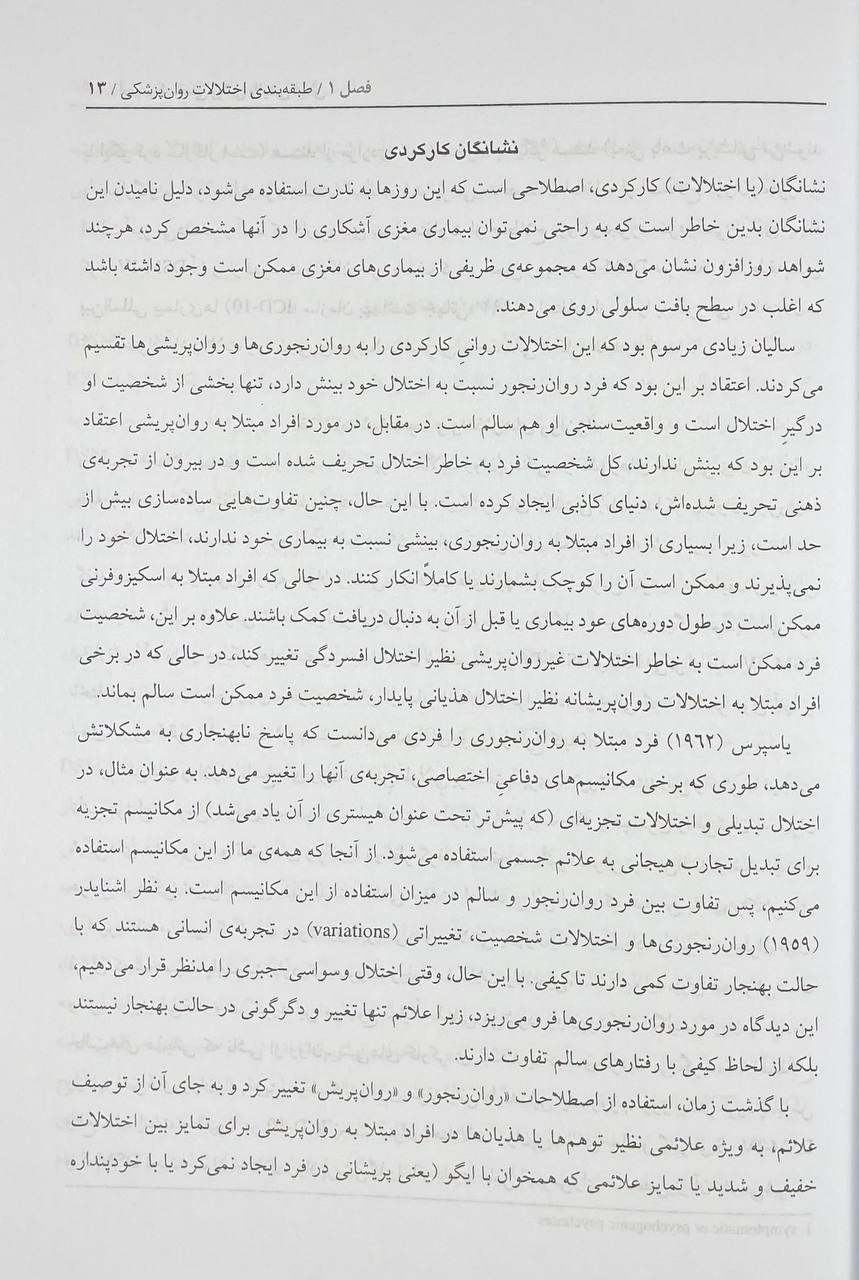 فصل ۱ / طبقه‌بندی اختلالات روان‌پزشکی / ۱۳
نشانگان کارکردی
نشانگان (یا اختلالات) کارکردی، اصطلاحی است که این روزها به ندرت استفاده می‌شود، دلیل نامیدن این
نشانگان بدین خاطر است که به راحتی نمی‌توان بیماری مغزی آشکاری را در آنها مشخص کرد، هرچند
شواهد روزافزون نشان می‌دهد که مجموعه‌ی ظریفی از بیماری‌های مغزی ممکن است وجود داشته باشد
که اغلب در سطح بافت سلولی روی می‌دهند.
سالیان زیادی مرسوم بود که این اختلالات روانیِ کارکردی را به روان‌رنجوری‌ها و روان‌پریشی‌ها تقسیم
می‌کردند. اعتقاد بر این بود که فرد روان‌رنجور نسبت به اختلال خود بینش دارد، تنها بخشی از شخصیت او
درگیرِ اختلال است و واقعیت‌سنجی او هم سالم است. در مقابل، در مورد افراد مبتلا به روان‌پریشی اعتقاد
بر این بود که بینش ندارند، کل شخصیت فرد به خاطر اختلال تحریف شده است و در بیرون از تجربه‌ی
ذهنی تحریف شده‌اش، دنیای کاذبی ایجاد کرده است. با این حال، چنین تفاوت‌هایی ساده‌سازی بیش از
حد است، زیرا بسیاری از افراد مبتلا به روان‌رنجوری، بینشی نسبت به بیماری خود ندارند، اختلال خود را
نمی‌پذیرند و ممکن است آن را کوچک بشمارند یا کاملاً انکار کنند. در حالی که افراد مبتلا به اسکیزوفرنی
ممکن است در طول دوره‌های عود بیماری یا قبل از آن به دنبال دریافت کمک باشند. علاوه بر این، شخصیت
فرد ممکن است به خاطر اختلالات غیرروان‌پریشی نظیر اختلال افسردگی تغییر کند، در حالی که در برخی
افراد مبتلا به اختلالات روان‌پریشانه نظیر اختلال هذیانی پایدار، شخصیت فرد ممکن است سالم بماند.
یاسپرس (۱۹۶۲) فرد مبتلا به روان‌رنجوری را فردی می‌دانست که پاسخ نابهنجاری به مشکلاتش
می‌دهد، طوری که برخی مکانیسم‌های دفاعیِ اختصاصی، تجربه‌ی آنها را تغییر می‌دهد. به عنوان مثال، در
اختلال تبدیلی و اختلالات تجزیه‌ای (که پیش‌تر تحت عنوان هیستری از آن یاد می‌شد) از مکانیسم تجزیه
برای تبدیل تجارب هیجانی به علائم جسمی استفاده می‌شود. از آنجا که همه‌ی ما از این مکانیسم استفاده
می‌کنیم، پس تفاوت بین فرد روان‌رنجور و سالم در میزان استفاده از این مکانیسم است. به نظر اشنایدر
(۱۹۵۹) روان‌رنجوری‌ها و اختلالات شخصیت، تغییراتی (variations) در تجربه‌ی انسانی هستند که با
حالت بهنجار تفاوت کمی دارند تا کیفی. با این حال، وقتی اختلال وسواسی-جبری را مدنظر قرار می‌دهیم،
این دیدگاه در مورد روان‌رنجوری‌ها فرو می‌ریزد، زیرا علائم تنها تغییر و دگرگونی در حالت بهنجار نیستند
بلکه از لحاظ کیفی با رفتارهای سالم تفاوت دارند.
با گذشت زمان، استفاده از اصطلاحات «روان‌رنجور» و «روان‌پریش» تغییر کرد و به جای آن از توصیف
علائم، به ویژه علائمی نظیر توهم‌ها یا هذیان‌ها در افراد مبتلا به روان‌پریشی برای تمایز بین اختلالات
خفیف و شدید یا تمایز علائمی که همخوان با ایگو (یعنی پریشانی در فرد ایجاد نمی‌کرد یا با خودپنداره